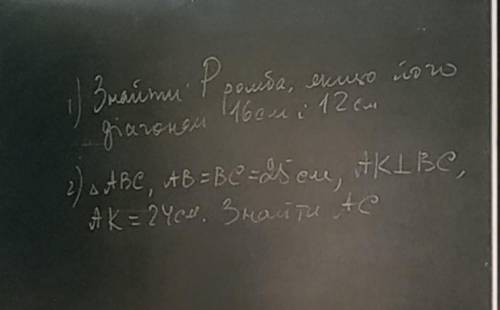 1) Знайти P ромба, якщо його
діагоналі 16см і 12см
2) △ABC, AB=BC=25см, AK⊥BC,
AK=24см. Знайти AC